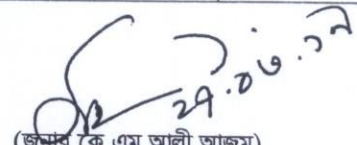 ২৭.০৬.১৭
(জনাব কে এম আলী আজম)